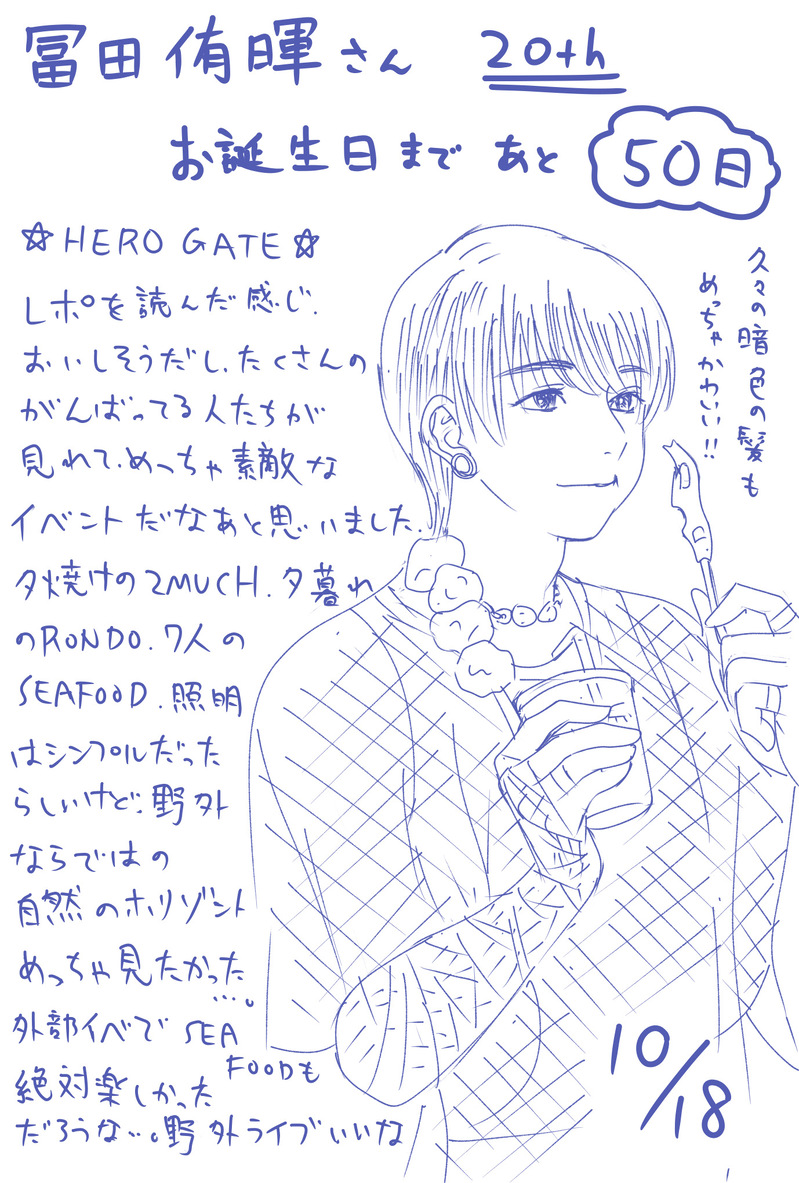 冨田侑暉さん 20th
お誕生日まで あと 50日
☆HERO GATE☆
レポを読んだ感じ.
おいしそうだし、たくさんの
がんばってる人たちが
見れて、めっちゃ素敵な
イベントだなあと思いました.
夕焼けの2MUCH. 夕暮れ
のRONDO. 7人の
SEAFOOD. 照明
はシンプルだった
らしいけど、野外
ならではの
自然のホリゾント
めっちゃ見たかった
…。
外部イベでSEA
FOODも
絶対楽しかった
だろうな…。野外ライブいいな
久々の暗色の髪も
めっちゃかわいい!!
10/18